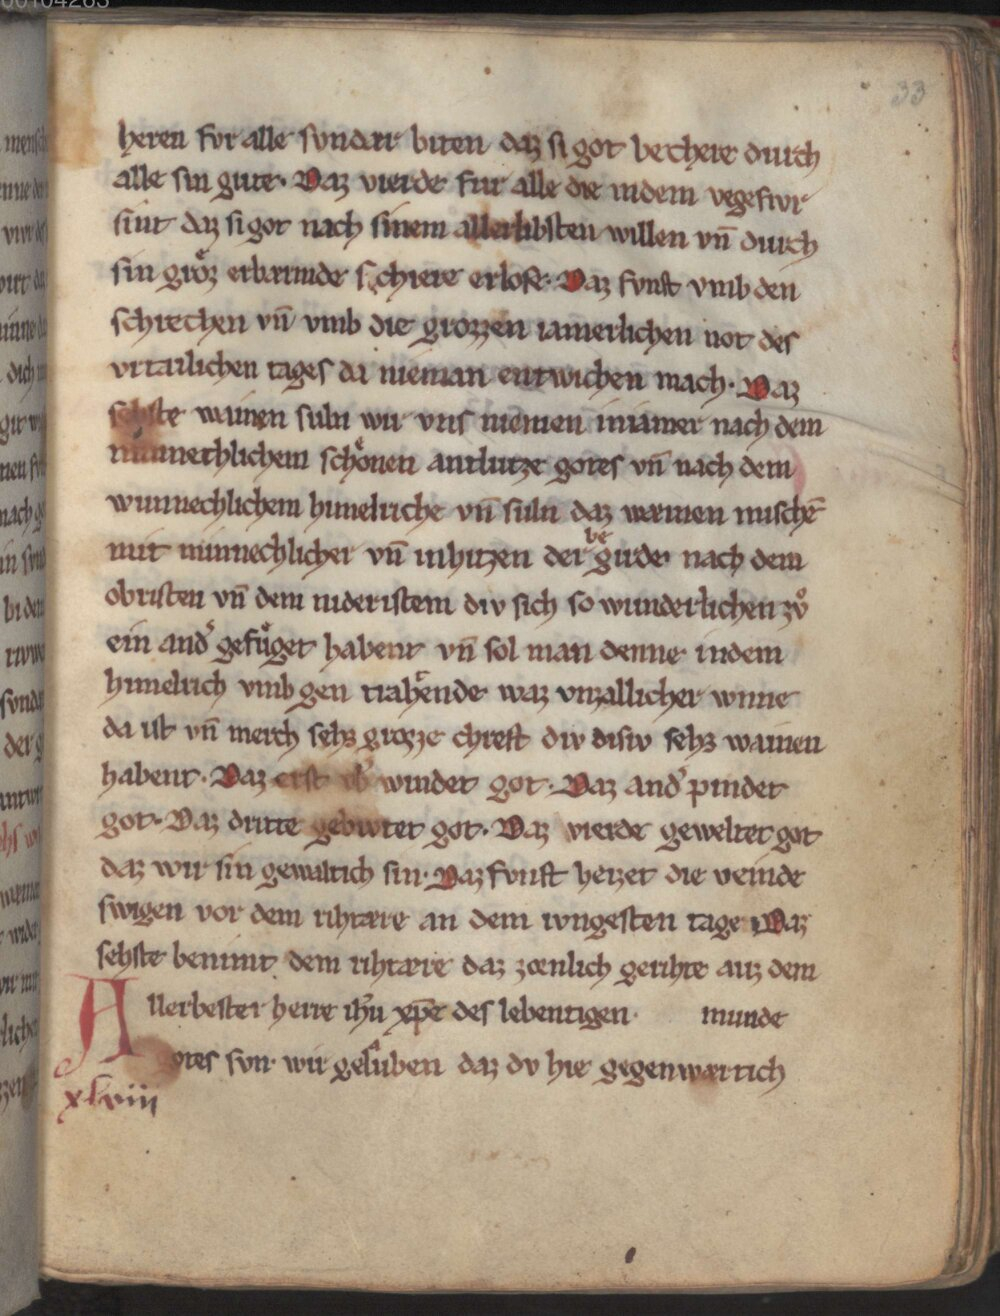 33
heren fvr alle svndær biten daz si got bechere durch
alle sin gute. Daz vierde fur alle die in dem vegefivr
sint daz si got nach sinem allerlibsten willen vn̄ durch
sin groͤz erbærmde schiere erlose. Daz fvnft vmb den
schrechen vn̄ vmb die grozzen iamerlichen not des
vrtailichen tages da nieman entwichen mach. Daz
sehste wainen suln wir vns niemen immer nach dem
minnechlichem schoͤnen antlutze gotes vn̄ nach dem
wunnechlichem himelriche vn̄ suln daz weinen mischē
mit minnechlicher vn̄ inhitzen der begirde nach dem
obristen vn̄ dem nideristem div sich so wunderlichen zvͦ
ein and᾽ gefuͦget habent vn̄ sol man denne in dem
himelrich vmb gen trahende waz vnzallicher wnne
da ist vn̄ merch sehs grozze chreft div disiv sehs wainen
habent. Daz erst vb᾽ windet got. Daz and᾽ pindet
got. Daz dritte gebivtet got. Daz vierde geweltet got
daz wir sin gewaltich sin. Daz fvnft heizet die veinde
swigen vor dem rihtære an dem ivngesten tage. Daz
sehste benimt dem rihtære daz zœnlich gerihte auz dem
Allerbester herre ih̄u xp̄e des lebentigen. munde
gotes svn. wir gelauben daz dv hie gegenwærtich
xlviii